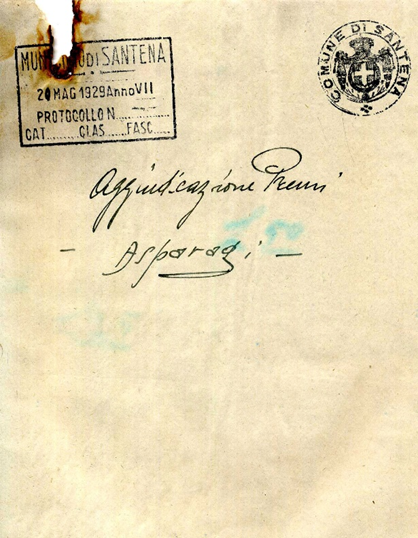 MUNICIPIO DI SANTENA
20 MAG 1929 Anno VII
PROTOCOLLO N.........
CAT.........CLAS......FASC......
COMUNE DI SANTENA
Aggiudicazione Premi
- Asparagi -